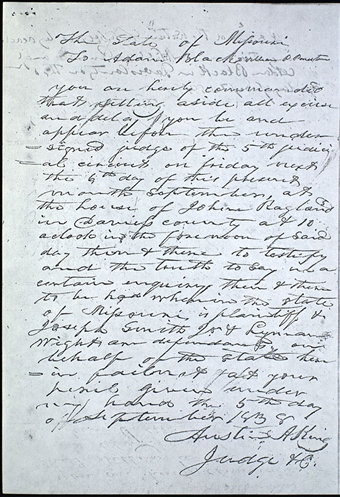 The State of Missouri
To Adam Black
you are hereby commanded
that setting aside all excuse
and delay you be and
appear before the under
signed judge of the 5th judici
= al circuit on friday next
the 6th day of this present
month September, at
the house of John Raglan
in Daviess county at 10
aclock in the forenoon of said
day then & there to testify
and the truth to say in a
certain enquiry then & there
to be had wherein the state
of Missouri is plaintiff &
Joseph Smith Jr & Lyman
Wight are defendants on
behalf of the state here
= in fail not at your
peril given under
my hand the 5th day
of September 1838
Austin A King
Judge &c.